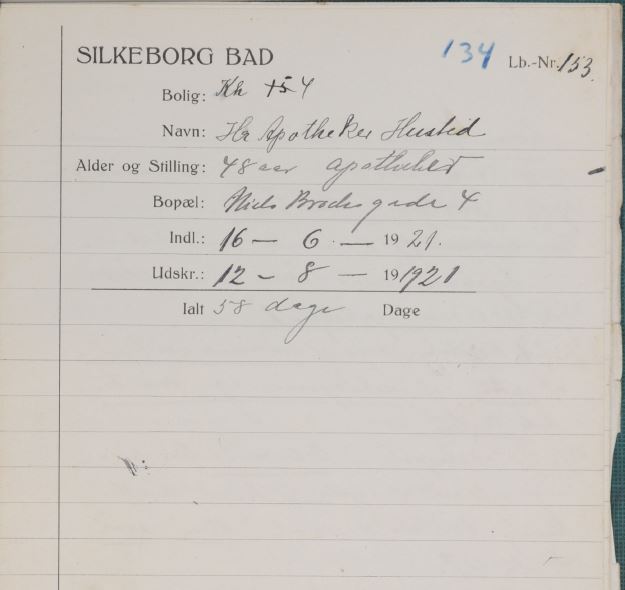 SILKEBORG BAD 134 Lb.-Nr. 153.
Bolig: Kh 15 4
Navn: Hr Apotheker Husted
Alder og Stilling: 48 aar apotheker
Bopæl: Niels Brocksgade 4
Indl.: 16 — 6 — 19 21.
Udskr.: 12 — 8 — 19 1921
Ialt 58 dage Dage